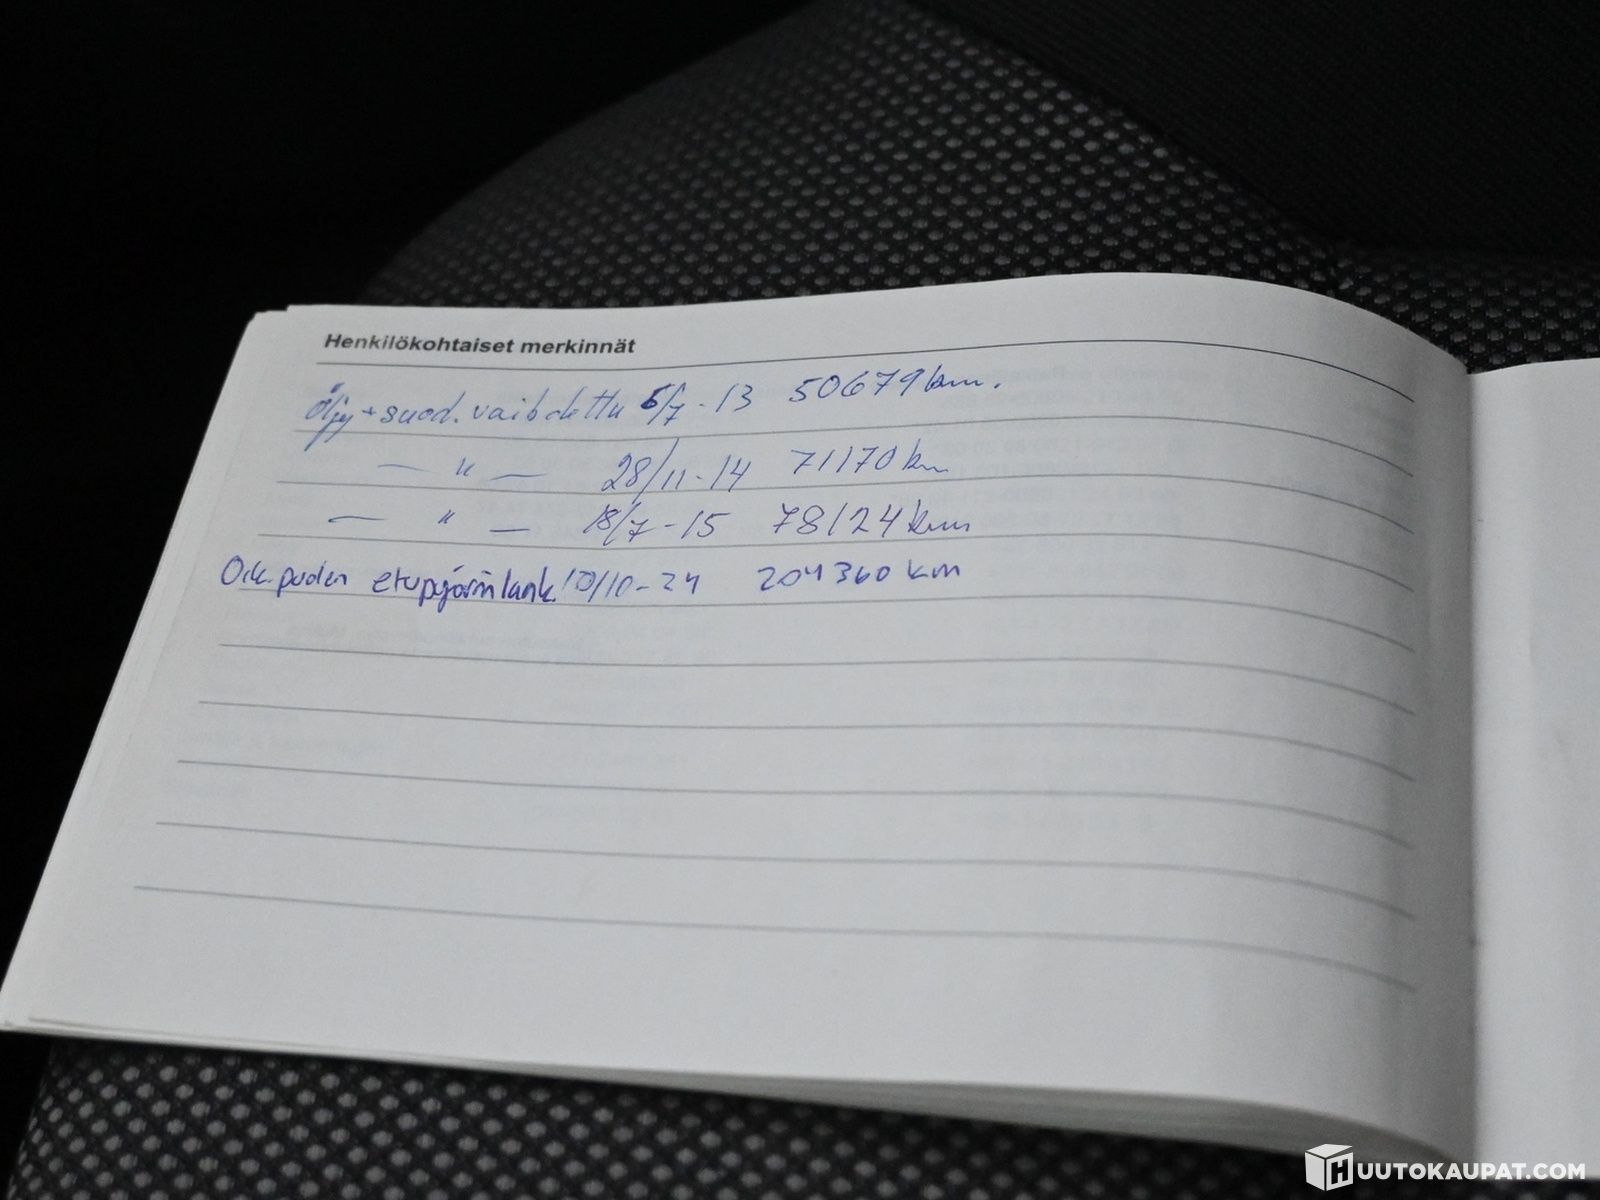 Henkilökohtaiset merkinnät
Öljy + suod. vaihdettu 6/7 - 13 50679 km.
— " — 28/11 - 14 71170 km
— " — 18/7 - 15 78124 km
Oik. puolen etupyörän lauk. 10/10 - 24 204360 km
HUUTOKAUPAT.COM